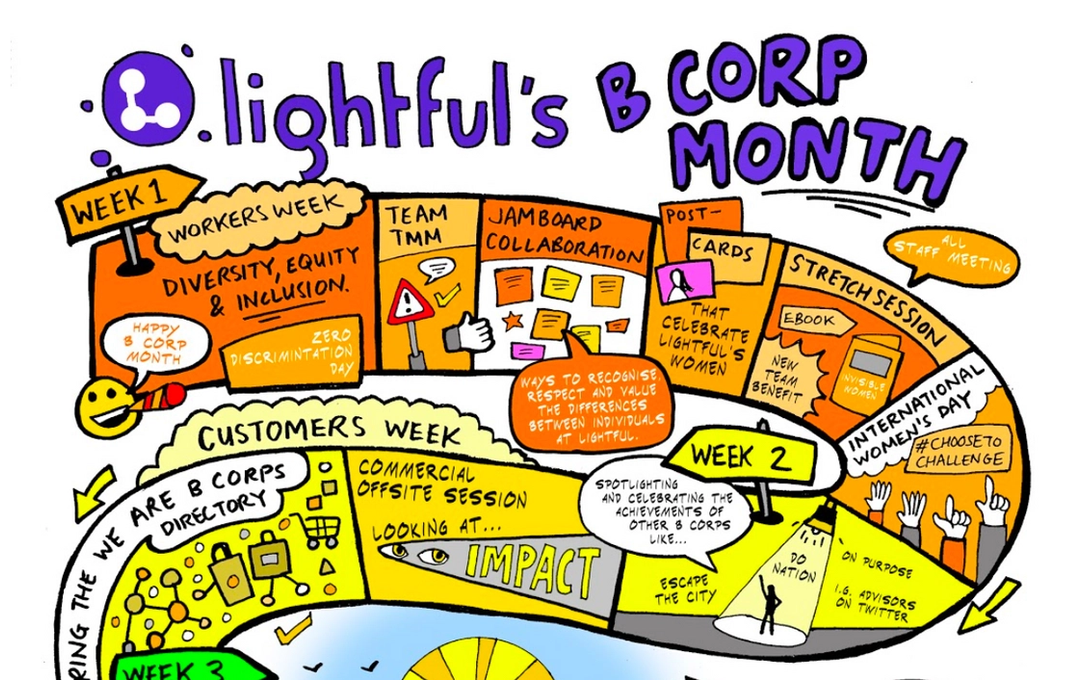 lightful's
B CORP
MONTH
WEEK 1
WORKERS WEEK
DIVERSITY, EQUITY
& INCLUSION.
HAPPY
B CORP
MONTH
ZERO
DISCRIMINTATION
DAY
TEAM
TMM
JAMBOARD
COLLABORATION
WAYS TO RECOGNISE,
RESPECT AND VALUE
THE DIFFERENCES
BETWEEN INDIVIDUALS
AT LIGHTFUL.
POST-
CARDS
THAT
CELEBRATE
LIGHTFUL'S
WOMEN
STRETCH SESSION
ALL
STAFF MEETING
EBOOK
NEW
TEAM
BENEFIT
INVISIBLE
WOMEN
INTERNATIONAL
WOMEN'S DAY
#CHOOSETO
CHALLENGE
WEEK 2
CUSTOMERS WEEK
SPOTLIGHTING
AND CELEBRATING THE
ACHIEVEMENTS OF
OTHER B CORPS
LIKE...
ESCAPE
THE CITY
DO
NATION
ON PURPOSE
I.G. ADVISORS
ON TWITTER
COMMERCIAL
OFFSITE SESSION
LOOKING AT...
IMPACT
RING THE WE ARE B CORPS
DIRECTORY
WEEK 3